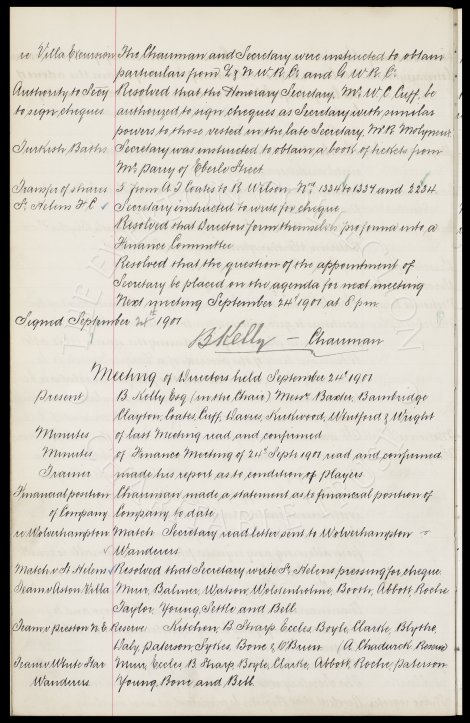 re Villa Excursion The Chairman and Secretary were instructed to obtain
particulars from L & N W R Co and G W R Co
Authority to Secy Resolved that the Honorary Secretary, Mr W C Cuff, be
to sign cheques authorized to sign cheques as Secretary with similar
powers to those vested in the late Secretary, Mr R Molyneux
Turkish Baths Secretary was instructed to obtain a book of tickets from
Mr Parry of Eberle Street
Transfer of shares 5 from A T Coates to R Wilson, Nos 1334 to 1337 and 2234
St Helens F C Secretary instructed to write for cheque
Resolved that Directors form themselves pro forma into a
Finance Committee
Resolved that the question of the appointment of
Secretary be placed on the agenda for next meeting
Next meeting September 24th 1901 at 8 pm
Signed September 24th 1901
B Kelly — Chairman
Meeting of Directors held September 24th 1901
Present B Kelly Esq (in the Chair) Messrs Baxter, Bainbridge
Clayton, Coates, Cuff, Davies, Kirkwood, Whitford & Wright
Minutes of last Meeting read and confirmed
Minutes of Finance Meeting of 24th Septr 1901 read and confirmed
Trainer made his report as to condition of players
Financial position Chairman made a statement as to financial position of
of Company Company to date
re Wolverhampton Match Secretary read letter sent to Wolverhampton
Wanderers
Match v St Helens Resolved that Secretary write St Helens pressing for cheque
Team v Aston Villa Muir, Balmer, Watson, Wolstenholme, Booth, Abbott, Roche
Taylor, Young, Settle and Bell
Team v Preston N E Reserve Kitchen, B Sharp, Eccles, Boyle, Clarke, Blythe,
Daly, Paterson, Sykes, Bone & O'Brien (A Chadwick Reserve)
Team v White Star Muir, Eccles, B Sharp, Boyle, Clarke, Abbott, Roche, Paterson
Wanderers Young, Bone and Bell